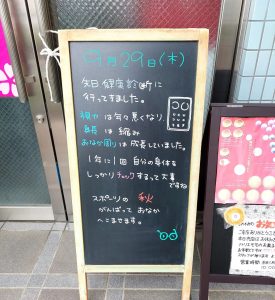 9月29日(木)
先日 健康診断に
行ってきました。
視力は年々悪くなり、
身長は縮み
おなか周りは成長していました。
1年に1回 自分の身体を
しっかりチェックするって大事
ですね
スポーツの秋
がんばって おなか
へこませます。
営業時間